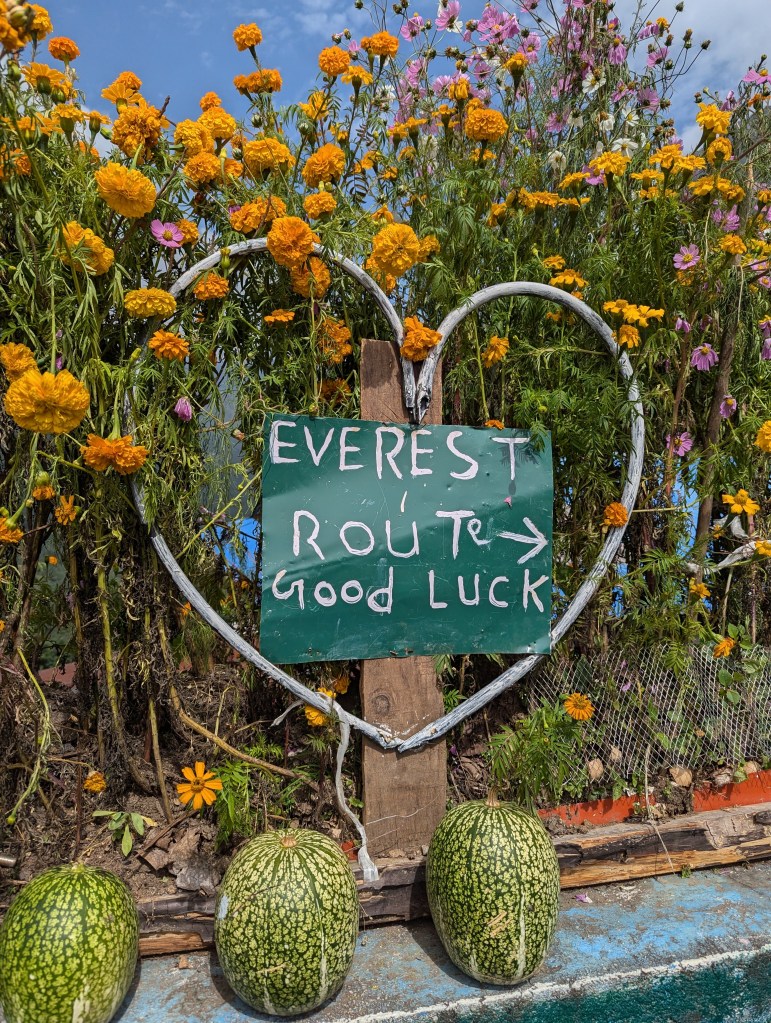 EVEREST
ROUTe →
GOOd LUCK